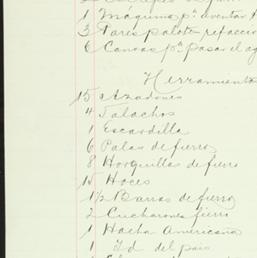 1 Máquina pª aventar
3 Pares palotes refaccio
6 Canoas pª pasar el ag
Herramienta
15 Azadones
4 Talachos
1 Escardilla
6 Palas de fierro
8 Horquillas de fierro
Hoces
1½ Barras de fierro
2 Cucharones fierro
1 Hacha Americana
1 Id del pais